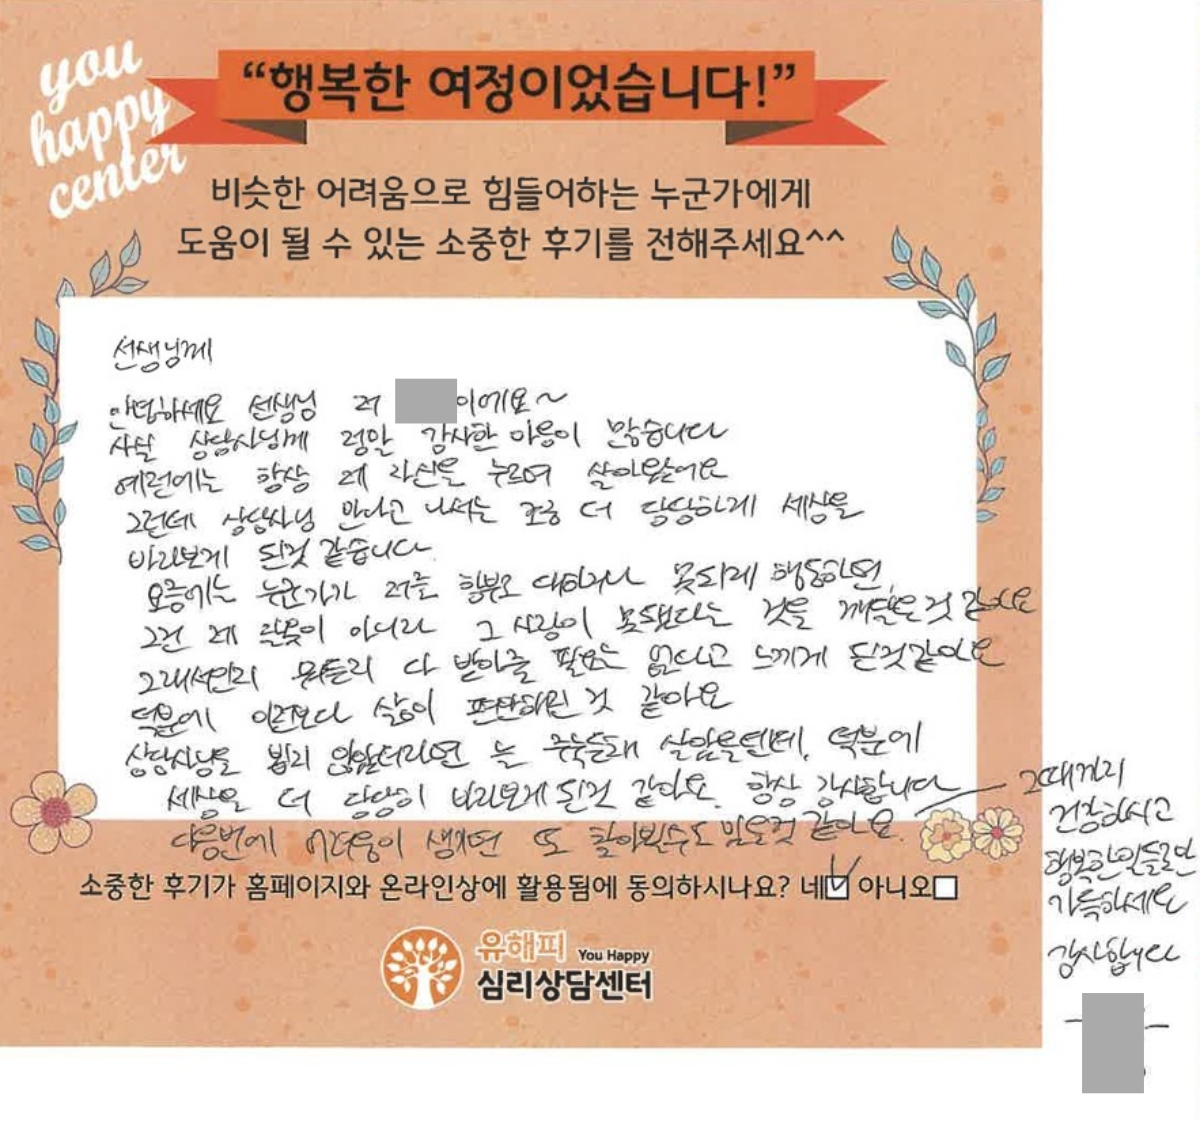 you
happy
center
“행복한 여정이었습니다!”
비슷한 어려움으로 힘들어하는 누군가에게
도움이 될 수 있는 소중한 후기를 전해주세요^^
선생님께
안녕하세요 선생님 저 이에요~
사실 상담사님께 정말 감사한 마음이 많습니다
예전에는 항상 제 자신을 누르며 살아왔어요
그런데 상담사님 만나고 나서는 조금 더 당당하게 세상을
바라보게 된것 같습니다.
요즘에는 누군가가 저를 함부로 대하거나 못되게 행동하면,
그건 제 잘못이 아니라 그 사람이 못됐다는 것을 깨달은 것 같아요
그래서인지 다 받아줄 필요는 없다고 느끼게 된것같아요
덕분에 이전보다 삶이 편안해진 것 같아요
상담사님을 뵙지 않았더라면 늘 주눅들며 살았을텐데, 덕분에
세상을 더 당당히 바라보게 된것 같아요. 항상 감사합니다
다음번에 어려움이 생기면 또 찾아뵐수도 있을것 같아요.
그때까지
건강하시고
행복한일들로만
가득하세요
감사합니다
소중한 후기가 홈페이지와 온라인상에 활용됨에 동의하시나요? 네☑ 아니오□
유해피 You Happy
심리상담센터